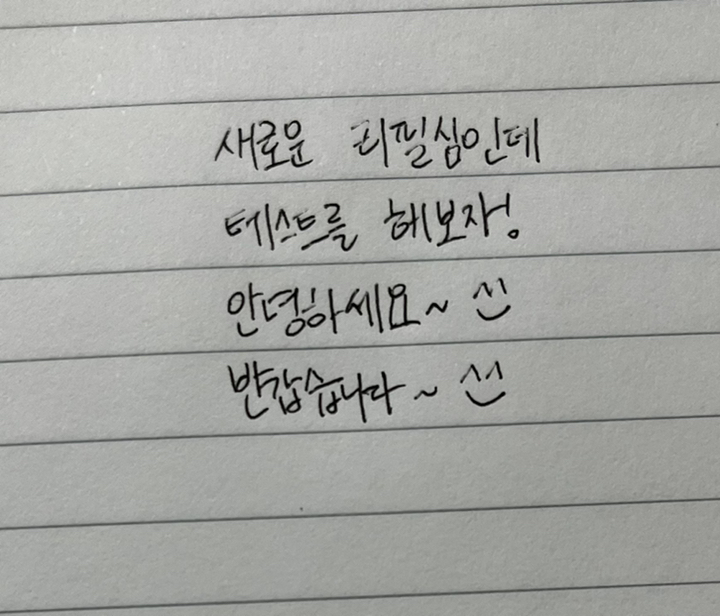 새로운 리필심인데
테스트를 해보자!
안녕하세요~ ^^
반갑습니다~ ^^